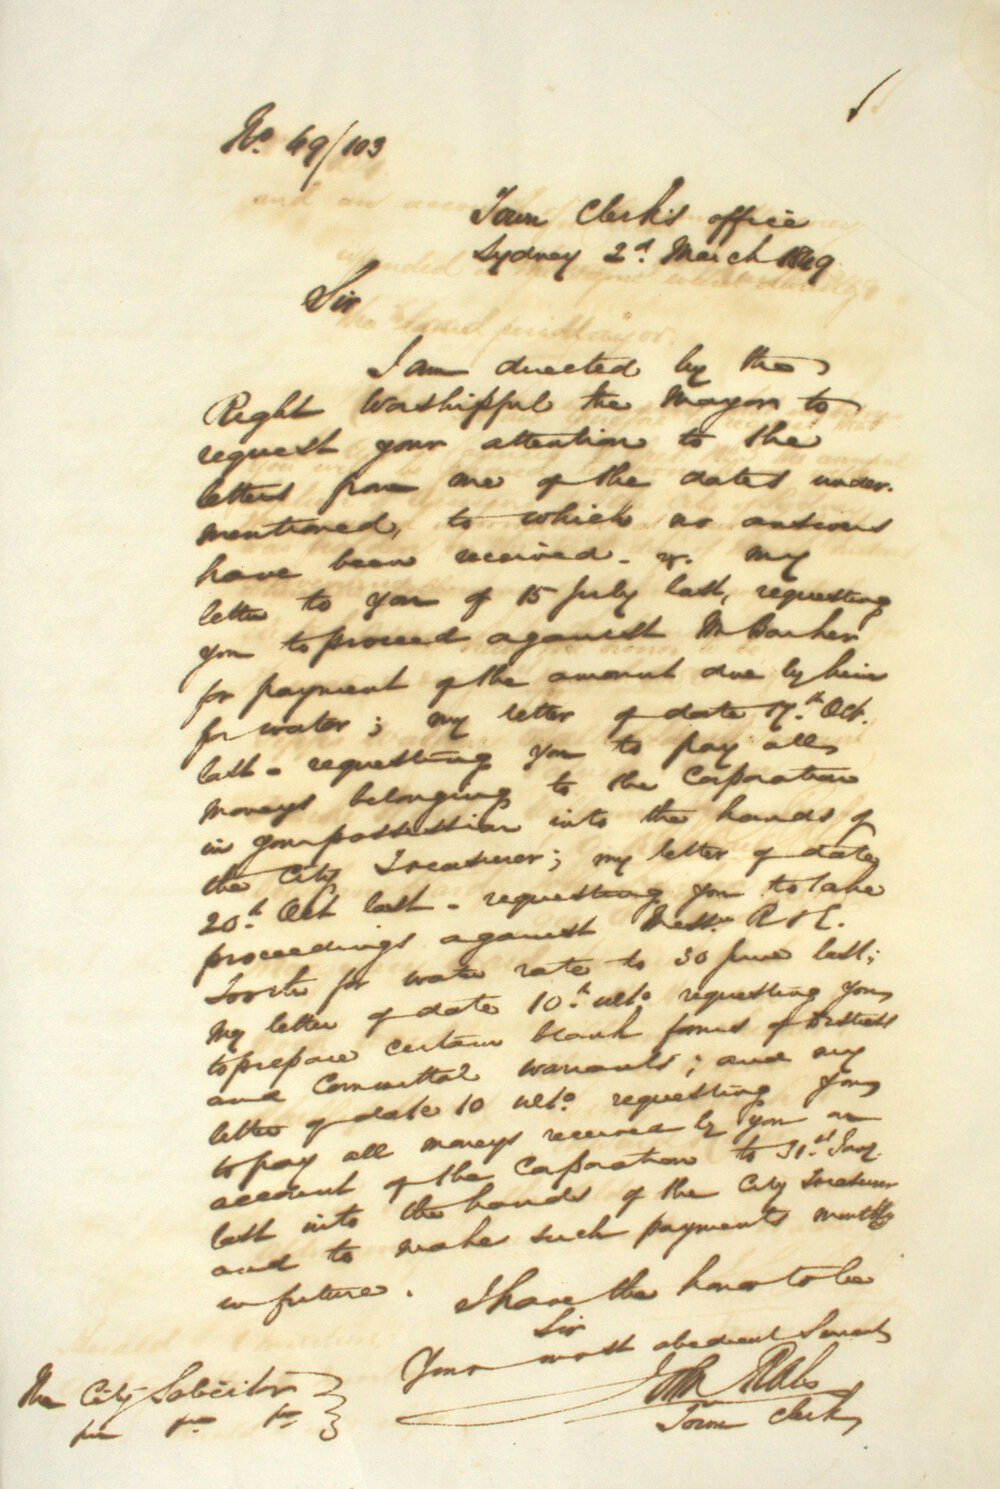 No. 49/103
Town Clerk's office
Sydney 2d. March 1849
Sir
I am directed by the
Right Worshipful the Mayor to
request your attention to the
letters from me of the dates under-
mentioned, to which no answers
have been received - vz. my
letter to you of 15 July last, requesting
you to proceed against Mr Barker
for payment of the amount due by him
for water; my letter of date 17th. Oct.
last - requesting you to pay all
moneys belonging to the Corporation
in your possession into the hands of
the City Treasurer; my letter of date
20th. Oct last - requesting you to take
proceedings against Messrs R & E.
Tooth for water rate to 30 June last;
my letter of date 10th. ulto. requesting you
to prepare certain blank forms of Distress
and Committal warrants; and my
letter of date 10 ulto. requesting you
to pay all moneys received by you on
account of the Corporation to 31st. Jany.
last into the hands of the City Treasurer
and to make such payments monthly
in future.
I have the honor to be
Sir
Your most obedient Servant
John Rae
Town Clerk
The City Solicitor